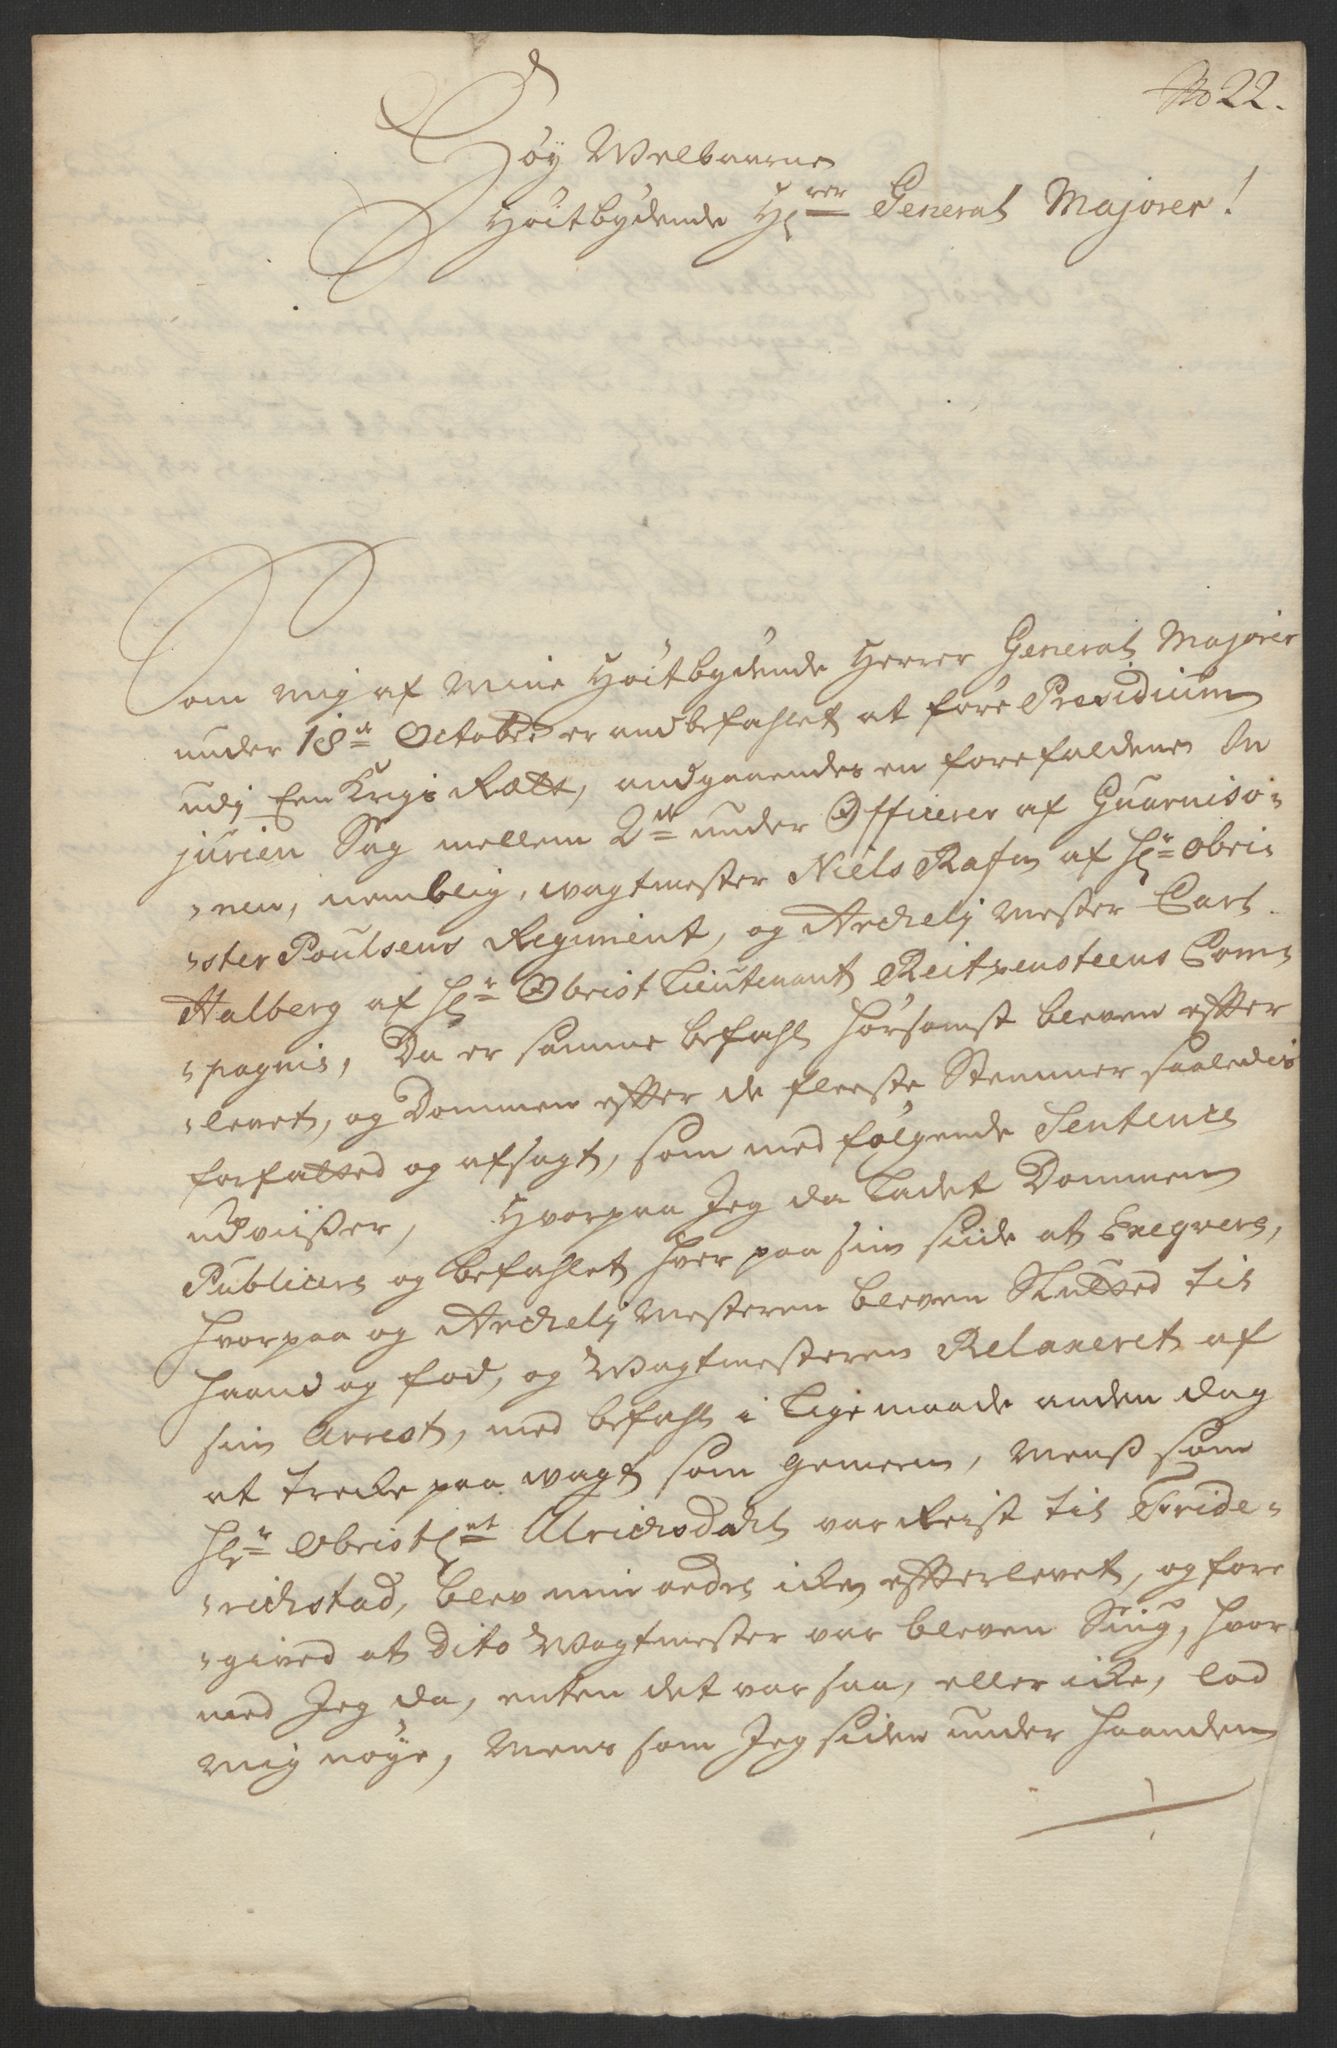 No 22.
Høy Welbaarne
Høitbydende Hrrer General Majorer!
Som mig af Mine Høitbydende Herrer General Majorer
under 18de October er andbefahlet at føre Presidium
udj Een Krigs Rætt, andgaaendes en forefaldene In
jurien Sag mellem 2de under Officerer af Guarniso-
-nen, nemblig, wagtmester Niels Rafn af Hr Obri-
-ster Poulsens Regiment, og Archelj Mester Carl
Aalberg af Hr Obrist Lieutenant Reitzensteens Com-
-pagnie, Da er samme befahl hørsomst bleven effter
-levet, og Dommen effter de fleeste Stemmer saaledis
forfatted og afsagt, som med følgende Sentence
udviißer, Hvorpaa Jeg da Ladet Dommen
Publicere og befahlet hver paa sin siide at Exeqvere,
hvorpaa og Archelj Mesteren bleven Slutted til
haand og fod, og Wagtmesteren Relaxeret af
sin Arrest, med befahl i Lige maade anden dag
at trecke paa wagt som gemeen, Menß som
Hr Obristlnt Ulrichsdahl var Reist til Fride-
-richstad, blev min ordre icke effterlevet, og fore
-gived at dito Wagtmester var bleven Siug, hvor
med Jeg da, enten det var saa, eller icke, lod
mig nøye, Mens som Jeg siden under haanden